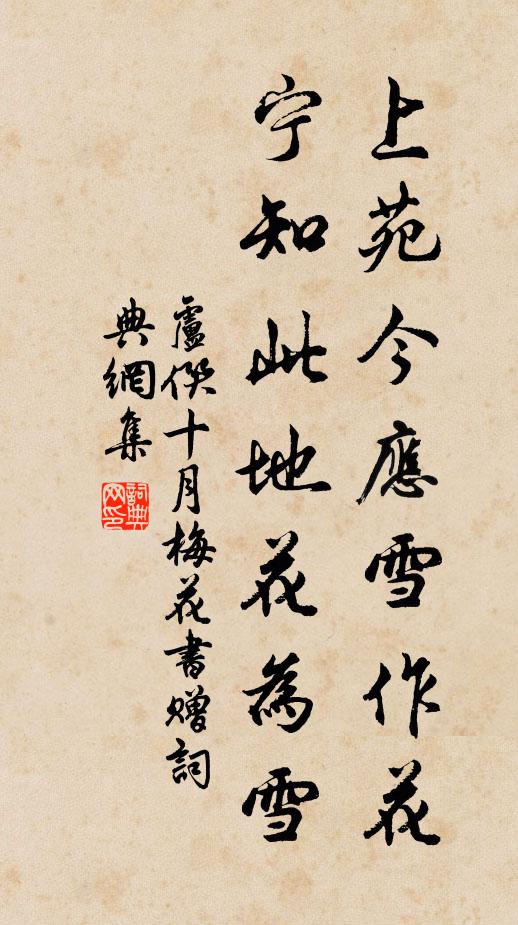 上苑今應雪作花
宁知此地花為雪
盧僎十月梅花書赠詞
典網集
詞典网印